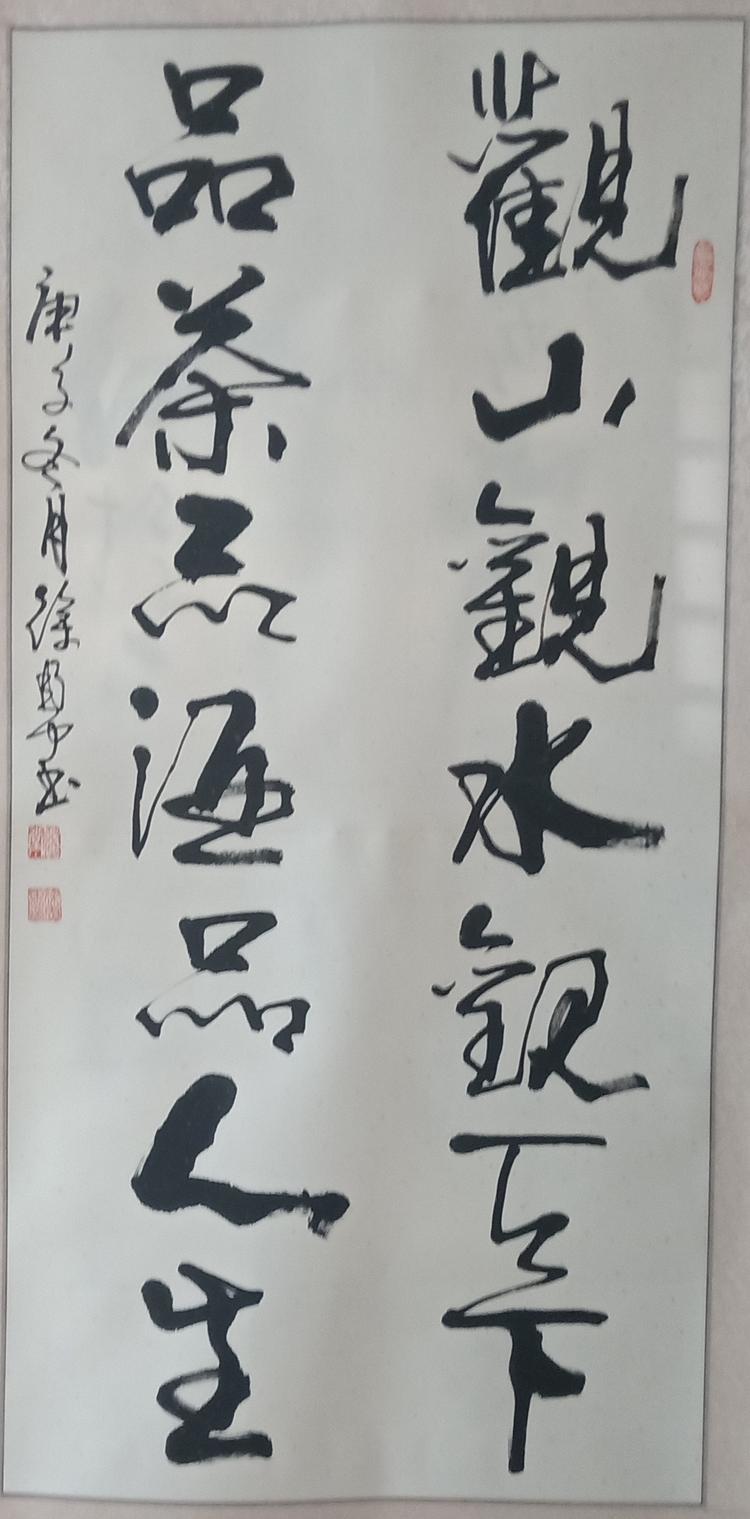 觀山觀水觀天下
品茶品酒品人生
庚子冬月徐書